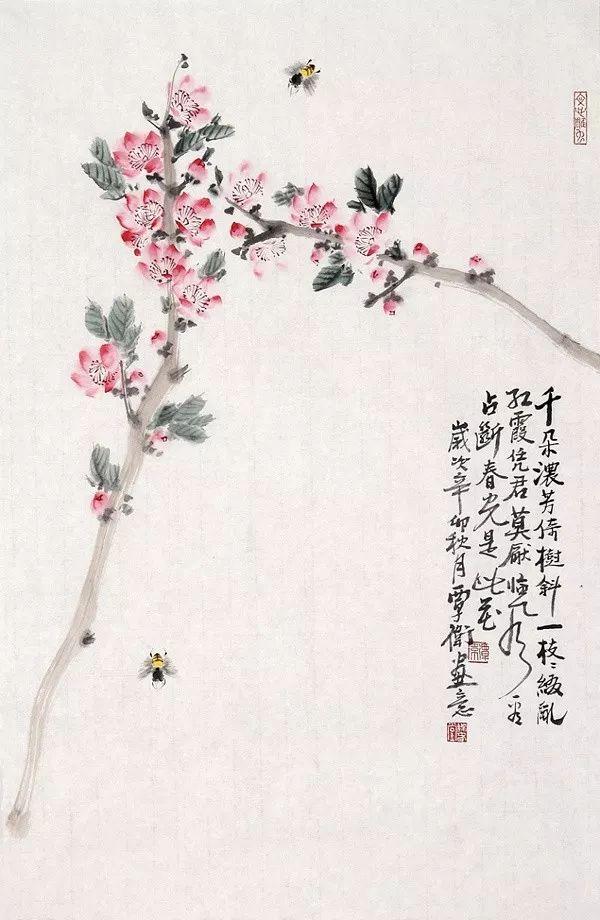 千朵濃芳倚樹斜一枝〻綴亂
红霞凭君莫厭临风看
占斷春光是此花
歲次辛卯秋月覃衛畫意